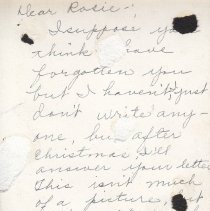 Dear Rosie -
I suppose you
think I have
forgotten you
but I haven't, just
don't write any-
one, but after
Christmas I'll
answer your letter
This isn't much
of a picture, but